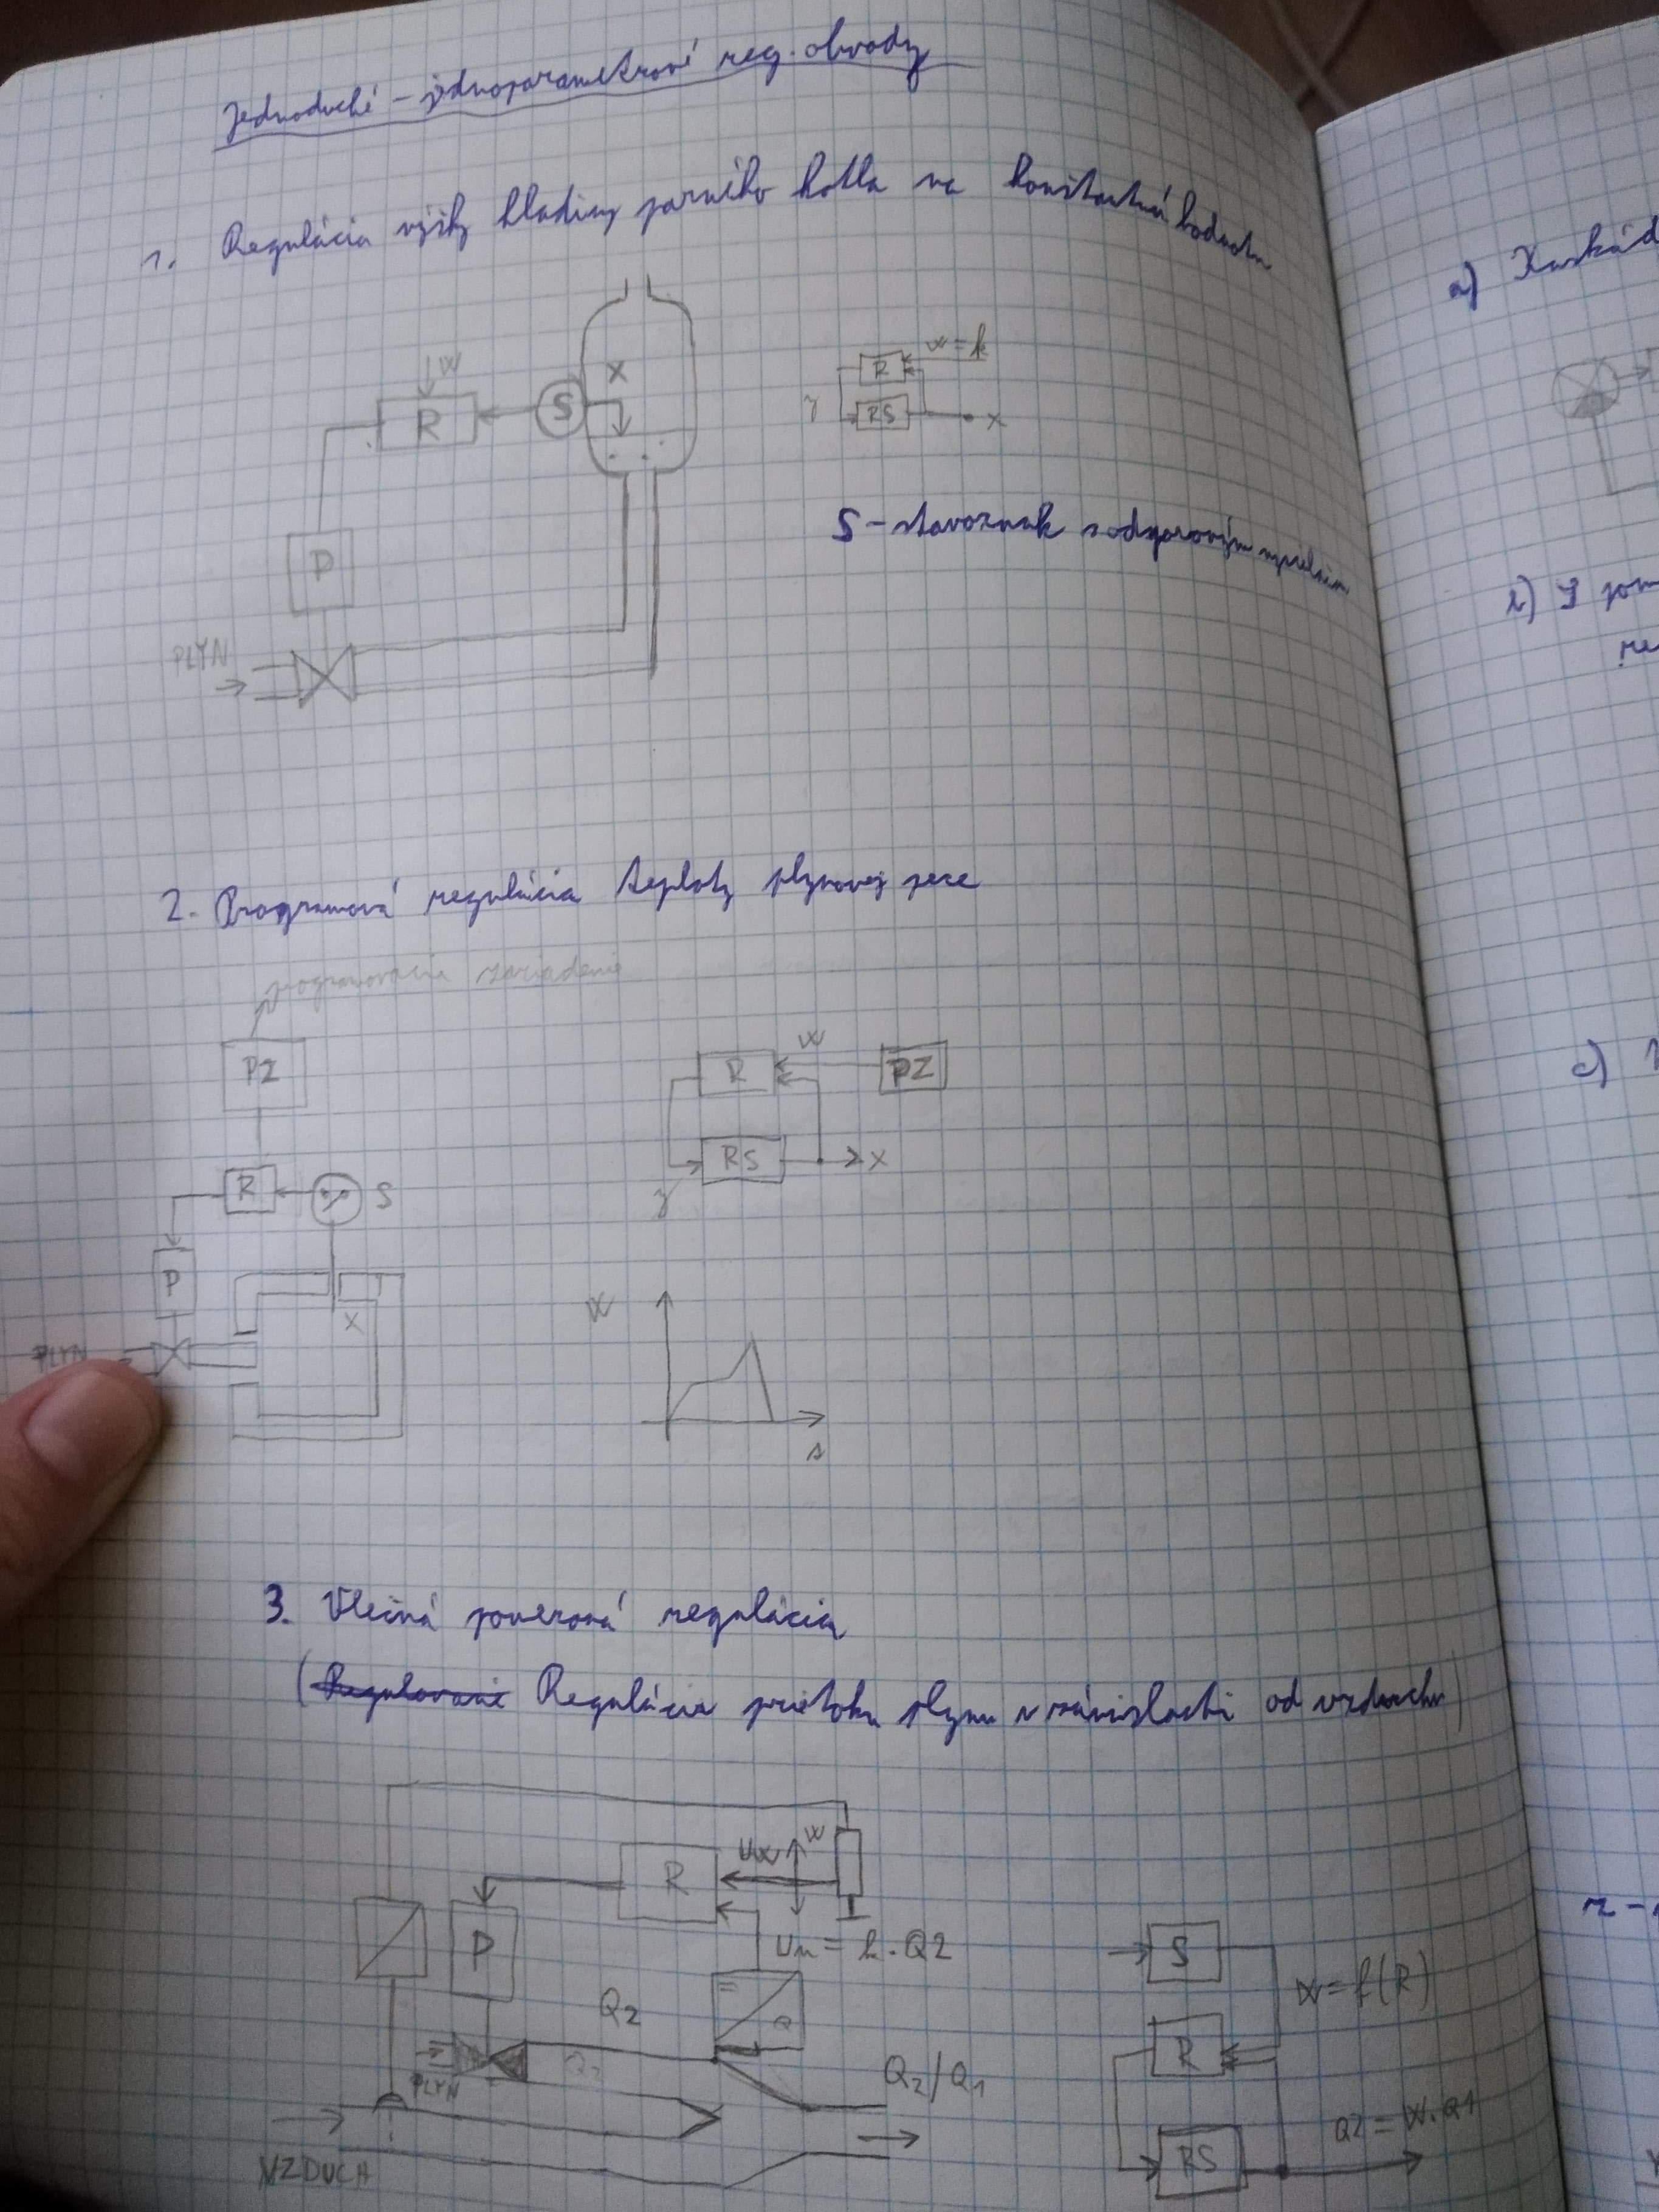 Jednoduché - jednoparametrové reg. obvody
1. Regulácia výšky hladiny parného kotla na konštantnú hodnotu
W
X
S
R
P
PLYN
w=k
R
y
RS
X
S - stavoznak s odporovým
2. Programová regulácia teploty plynovej pece
programovacie zariadenie
PZ
R
S
P
X
PLYN
W
R
PZ
RS
X
y
W
s
3. Vlečná pomerová regulácia
(Regulovanie Regulácia prietoku plynu v závislosti od vzduchu)
W
R
P
= k.Q2
Q2
PLYN
Q2/Q1
VZDUCH
S
W=f(R)
R
Q2=W.Q1
RS
a)
b)
c)